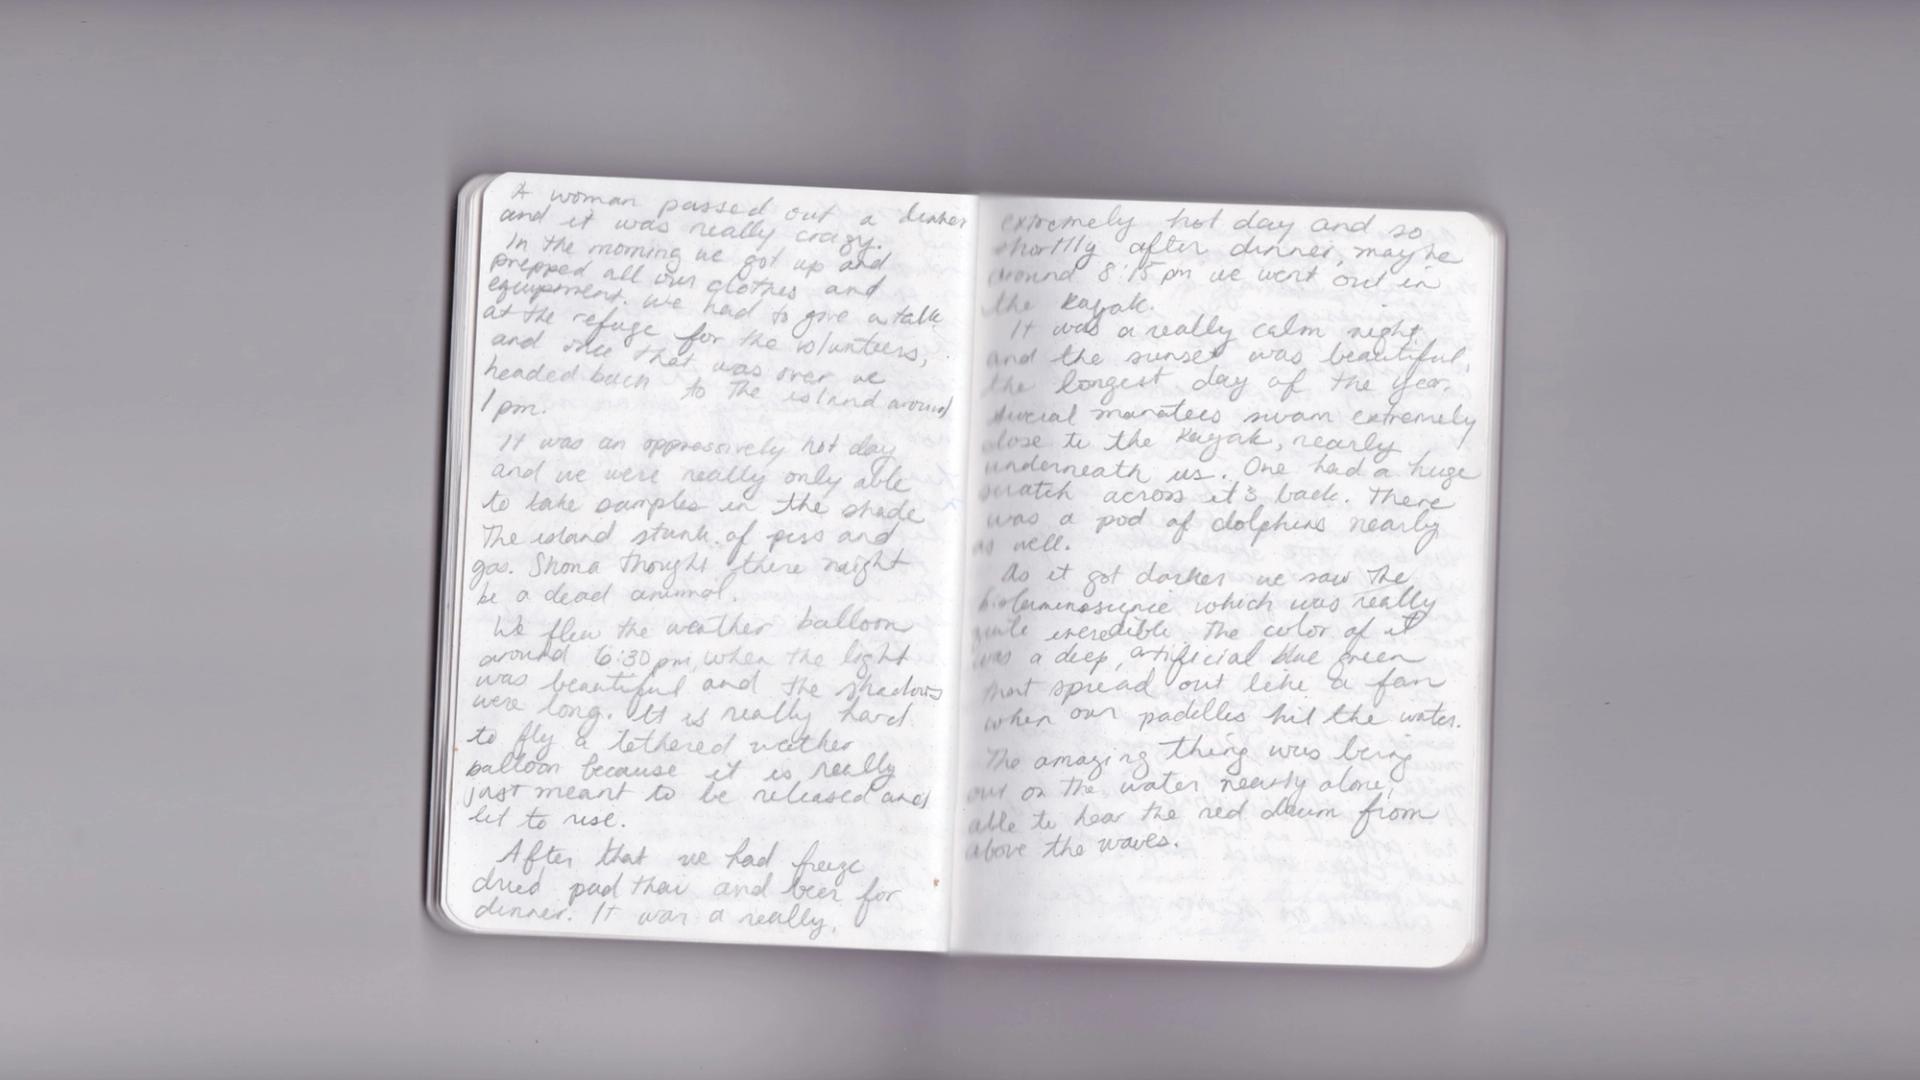 A woman passed out a dinner
and it was really crazy.
In the morning we got up and
prepped all our clothes and
equipment. We had to give a talk
at the refuge for the volunteers,
and once that was over we
headed back to the island around
1pm.
It was an oppressively hot day
and we were really only able
to take samples in the shade
The island stunk of piss and
gas. Shona thought there might
be a dead animal.
We flew the weather balloon
around 6:30pm, when the light
was beautiful and the shadows
were long. It is really hard
to fly a tethered weather
balloon because it is really
just meant to be released and
let to rise.
After that we had freeze
dried pad thai and beer for
dinner. It was a really,
extremely hot day and so
shortly after dinner, maybe
around 8:15 pm we went out in
the Kayak.
It was a really calm night,
and the sunset was beautiful,
the longest day of the year.
Several manatees swam extremely
close to the Kayak, nearly
underneath us. One had a huge
scratch across it's back. There
was a pod of dolphins nearby
as well.
As it got darker we saw the
which was really
quite incredible. The color of it
was a deep, artificial blue green
that spread out like a fan
when our paddles hit the water.
The amazing thing was being
out on the water nearly alone,
able to hear the red drum from
above the waves.